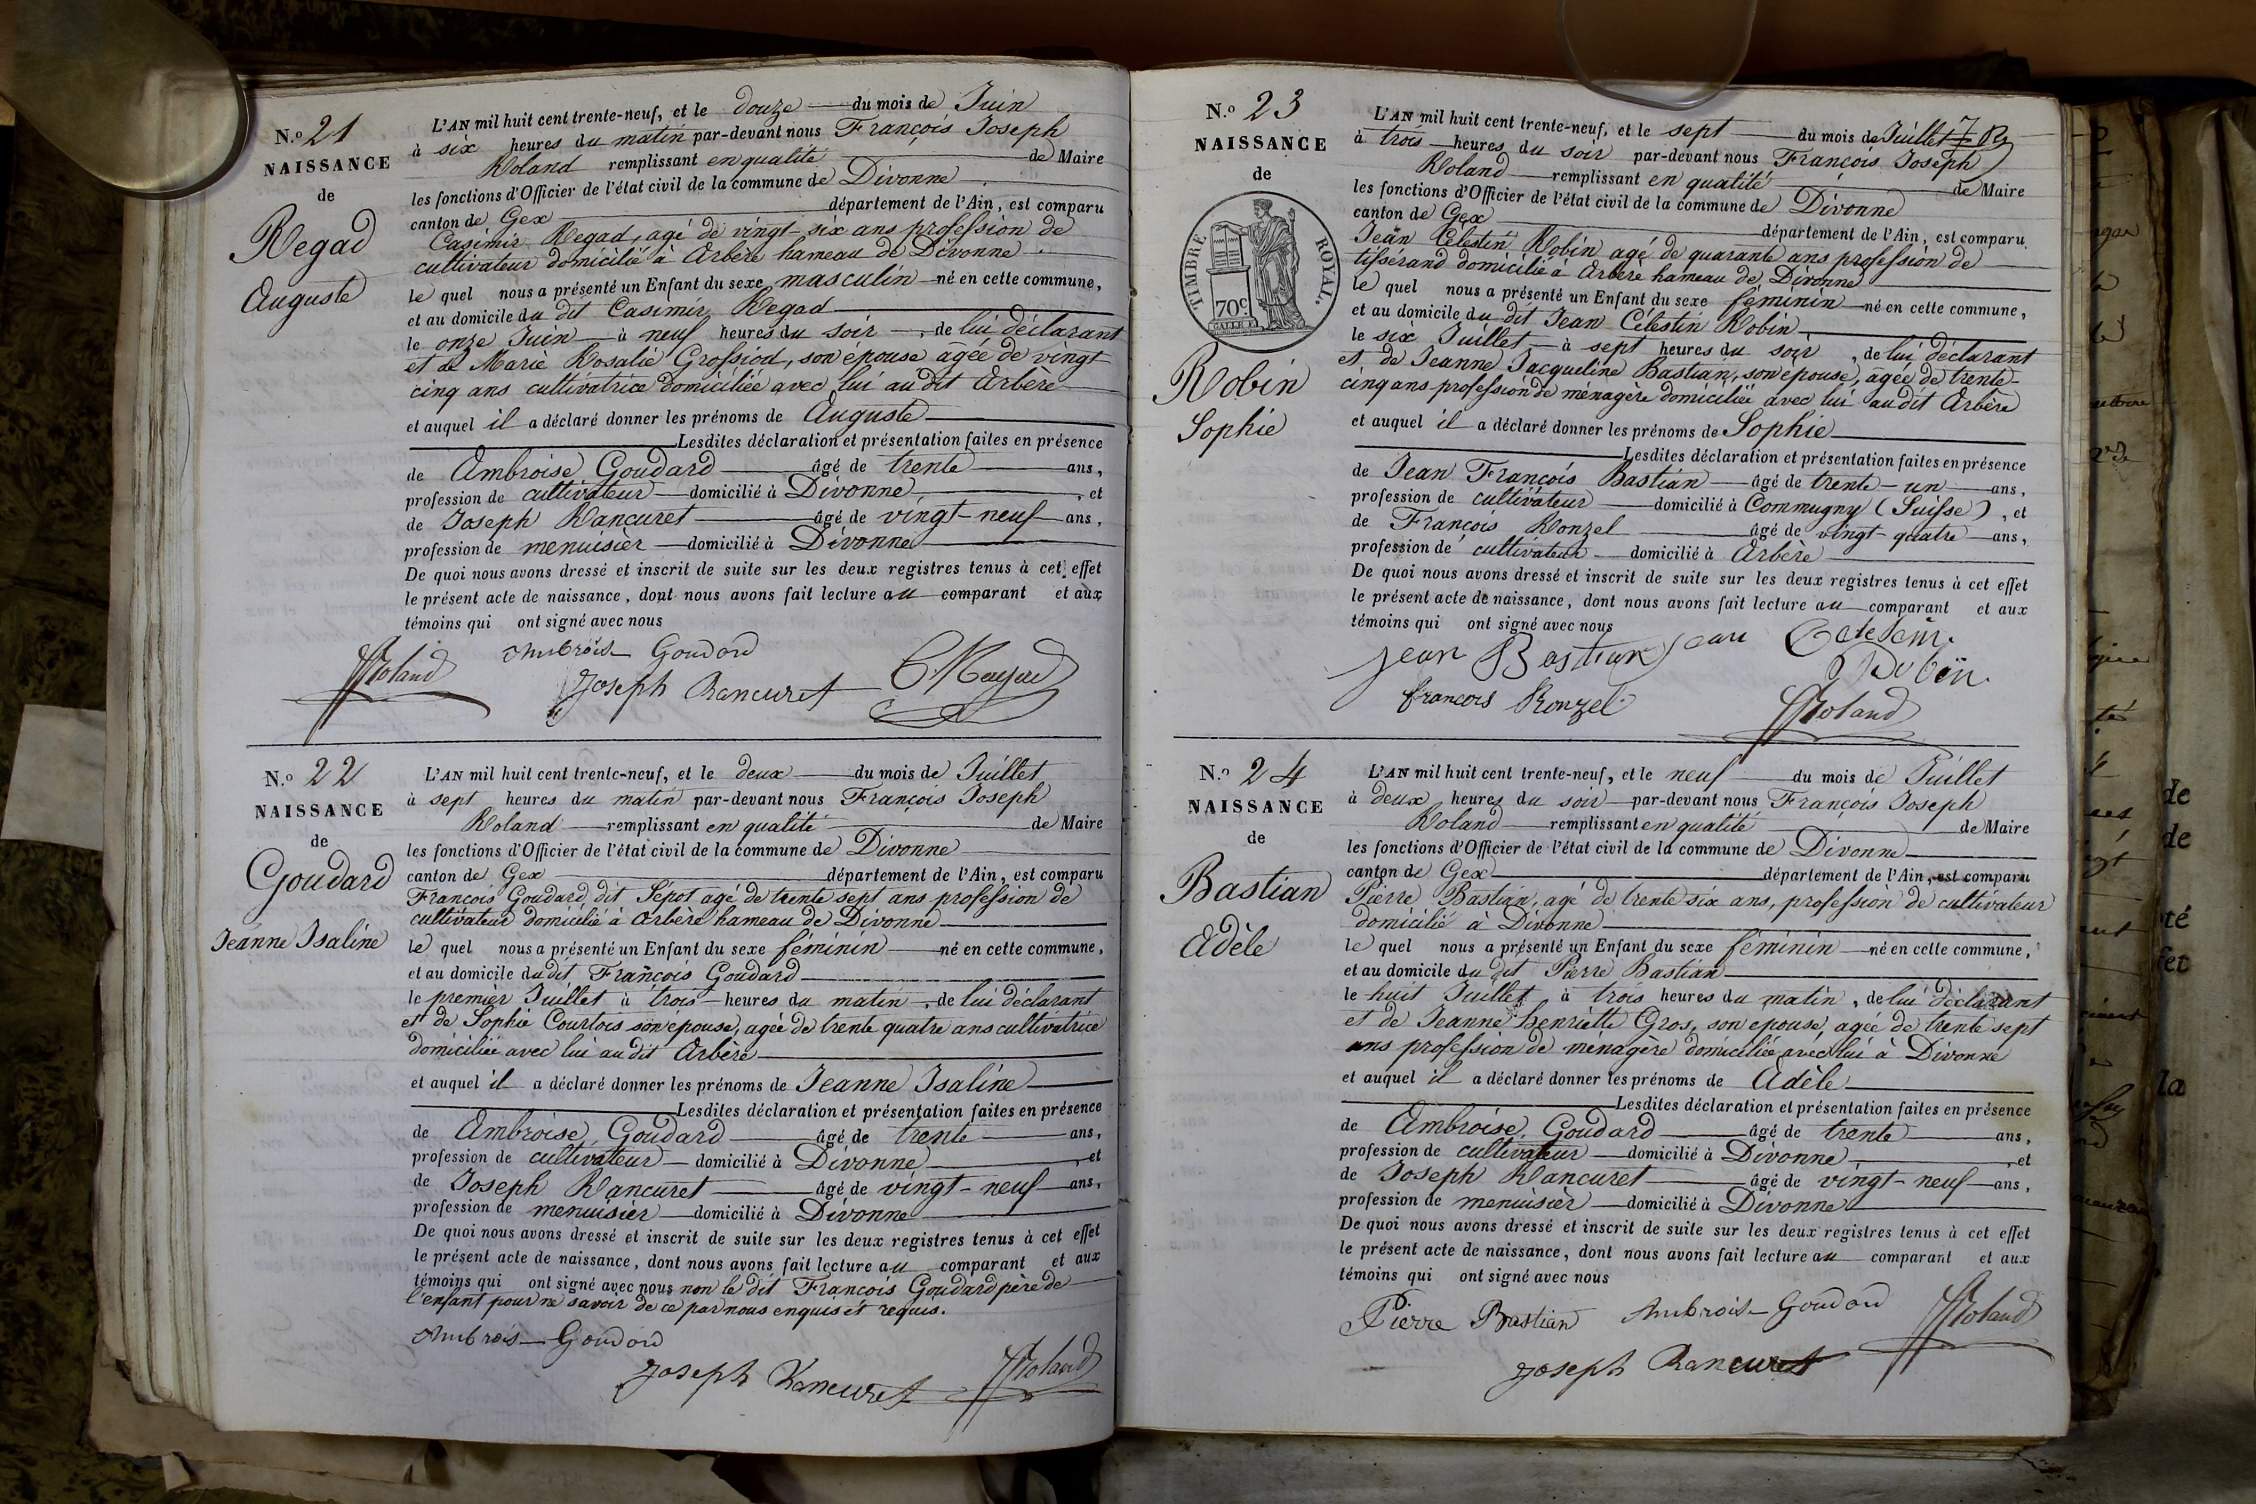 N.o 21
NAISSANCE
de
Regad
Auguste
L'AN mil huit cent trente-neuf, et le douze du mois de Juin
à six heures du matin par-devant nous François Joseph
Roland remplissant en qualité de Maire
les fonctions d'Officier de l'état civil de la commune de Divonne
canton de Gex département de l'Ain, est comparu
Casimir Regad, agé de vingt-six ans profession de
cultivateur domicilié à Arbère hameau de Divonne
le quel nous a présenté un Enfant du sexe masculin né en cette commune,
et au domicile du dit Casimir Regad
le onze Juin à neuf heures du soir, de lui déclarant
et de Marie Rosalie Grossiod, son épouse agée de vingt
cinq ans cultivatrice domiciliée avec lui au dit Arbère
et auquel il a déclaré donner les prénoms de Auguste
Lesdites déclaration et présentation faites en présence
de Ambroise Goudard âgé de trente ans,
profession de cultivateur domicilié à Divonne, et
de Joseph Rancuret âgé de vingt-neuf ans,
profession de menuisier domicilié à Divonne
De quoi nous avons dressé et inscrit de suite sur les deux registres tenus à cet effet
le présent acte de naissance, dont nous avons fait lecture au comparant et aux
témoins qui ont signé avec nous
Ambrois Goudard
Roland
Joseph Rancuret
N.o 22
NAISSANCE
de
Goudard
Jeanne Isaline
L'AN mil huit cent trente-neuf, et le deux du mois de Juillet
à sept heures du matin par-devant nous François Joseph
Roland remplissant en qualité de Maire
les fonctions d'Officier de l'état civil de la commune de Divonne
canton de Gex département de l'Ain, est comparu
François Goudard dit Sépot agé de trente sept ans profession de
cultivateur domicilié à Arbère hameau de Divonne
le quel nous a présenté un Enfant du sexe féminin né en cette commune,
et au domicile du dit François Goudard
le premier Juillet à trois heures du matin, de lui déclarant
et de Sophie Courtois son épouse, agée de trente quatre ans cultivatrice
domiciliée avec lui au dit Arbère
et auquel il a déclaré donner les prénoms de Jeanne Isaline
Lesdites déclaration et présentation faites en présence
de Ambroise Goudard âgé de trente ans,
profession de cultivateur domicilié à Divonne, et
de Joseph Rancuret âgé de vingt-neuf ans,
profession de menuisier domicilié à Divonne
De quoi nous avons dressé et inscrit de suite sur les deux registres tenus à cet effet
le présent acte de naissance, dont nous avons fait lecture au comparant et aux
témoins qui ont signé avec nous non le dit François Goudard père de
l'enfant pour ne savoir de ce par nous enquis et requis.
Ambrois Goudard
Joseph Rancuret Roland
N.o 23
NAISSANCE
de
TIMBRE ROYAL.
70c
Robin
Sophie
L'AN mil huit cent trente-neuf, et le sept du mois de Juillet
à trois heures du soir par-devant nous François Joseph
Roland remplissant en qualité de Maire
les fonctions d'Officier de l'état civil de la commune de Divonne
canton de Gex département de l'Ain, est comparu
Jean Célestin Robin agé de quarante ans profession de
tisserand domicilié à Arbère hameau de Divonne
le quel nous a présenté un Enfant du sexe féminin né en cette commune,
et au domicile du dit Jean Célestin Robin
le six Juillet à sept heures du soir, de lui déclarant
et de Jeanne Jacqueline Bastian, son épouse, agée de trente-
cinq ans profession de ménagère domiciliée avec lui au dit Arbère
et auquel il a déclaré donner les prénoms de Sophie
Lesdites déclaration et présentation faites en présence
de Jean François Bastian âgé de trente-un ans,
profession de cultivateur domicilié à Commugny (Suisse), et
de François Ronzel âgé de vingt-quatre ans,
profession de cultivateur domicilié à Arbère
De quoi nous avons dressé et inscrit de suite sur les deux registres tenus à cet effet
le présent acte de naissance, dont nous avons fait lecture au comparant et aux
témoins qui ont signé avec nous
Jean Bastian Jean Celestin
Robin
francois Ronzel Roland
N.o 24
NAISSANCE
de
Bastian
Adèle
L'AN mil huit cent trente-neuf, et le neuf du mois de Juillet
à deux heures du soir par-devant nous François Joseph
Roland remplissant en qualité de Maire
les fonctions d'Officier de l'état civil de la commune de Divonne
canton de Gex département de l'Ain, est comparu
Pierre Bastian, agé de trente six ans, profession de cultivateur
domicilié à Divonne
le quel nous a présenté un Enfant du sexe féminin né en cette commune,
et au domicile du dit Pierre Bastian
le huit Juillet à trois heures du matin, de lui déclarant
et de Jeanne henriette Gros, son epouse, agée de trente sept
ans profession de menagère domiciliée avec lui à Divonne
et auquel il a déclaré donner les prénoms de Adèle
Lesdites déclaration et présentation faites en présence
de Ambroise Goudard âgé de trente ans,
profession de cultivateur domicilié à Divonne, et
de Joseph Rancuret âgé de vingt-neuf ans,
profession de menuisier domicilié à Divonne
De quoi nous avons dressé et inscrit de suite sur les deux registres tenus à cet effet
le présent acte de naissance, dont nous avons fait lecture au comparant et aux
témoins qui ont signé avec nous
Pierre Bastian Ambrois Goudard Roland
Joseph Rancuret
de
de
la